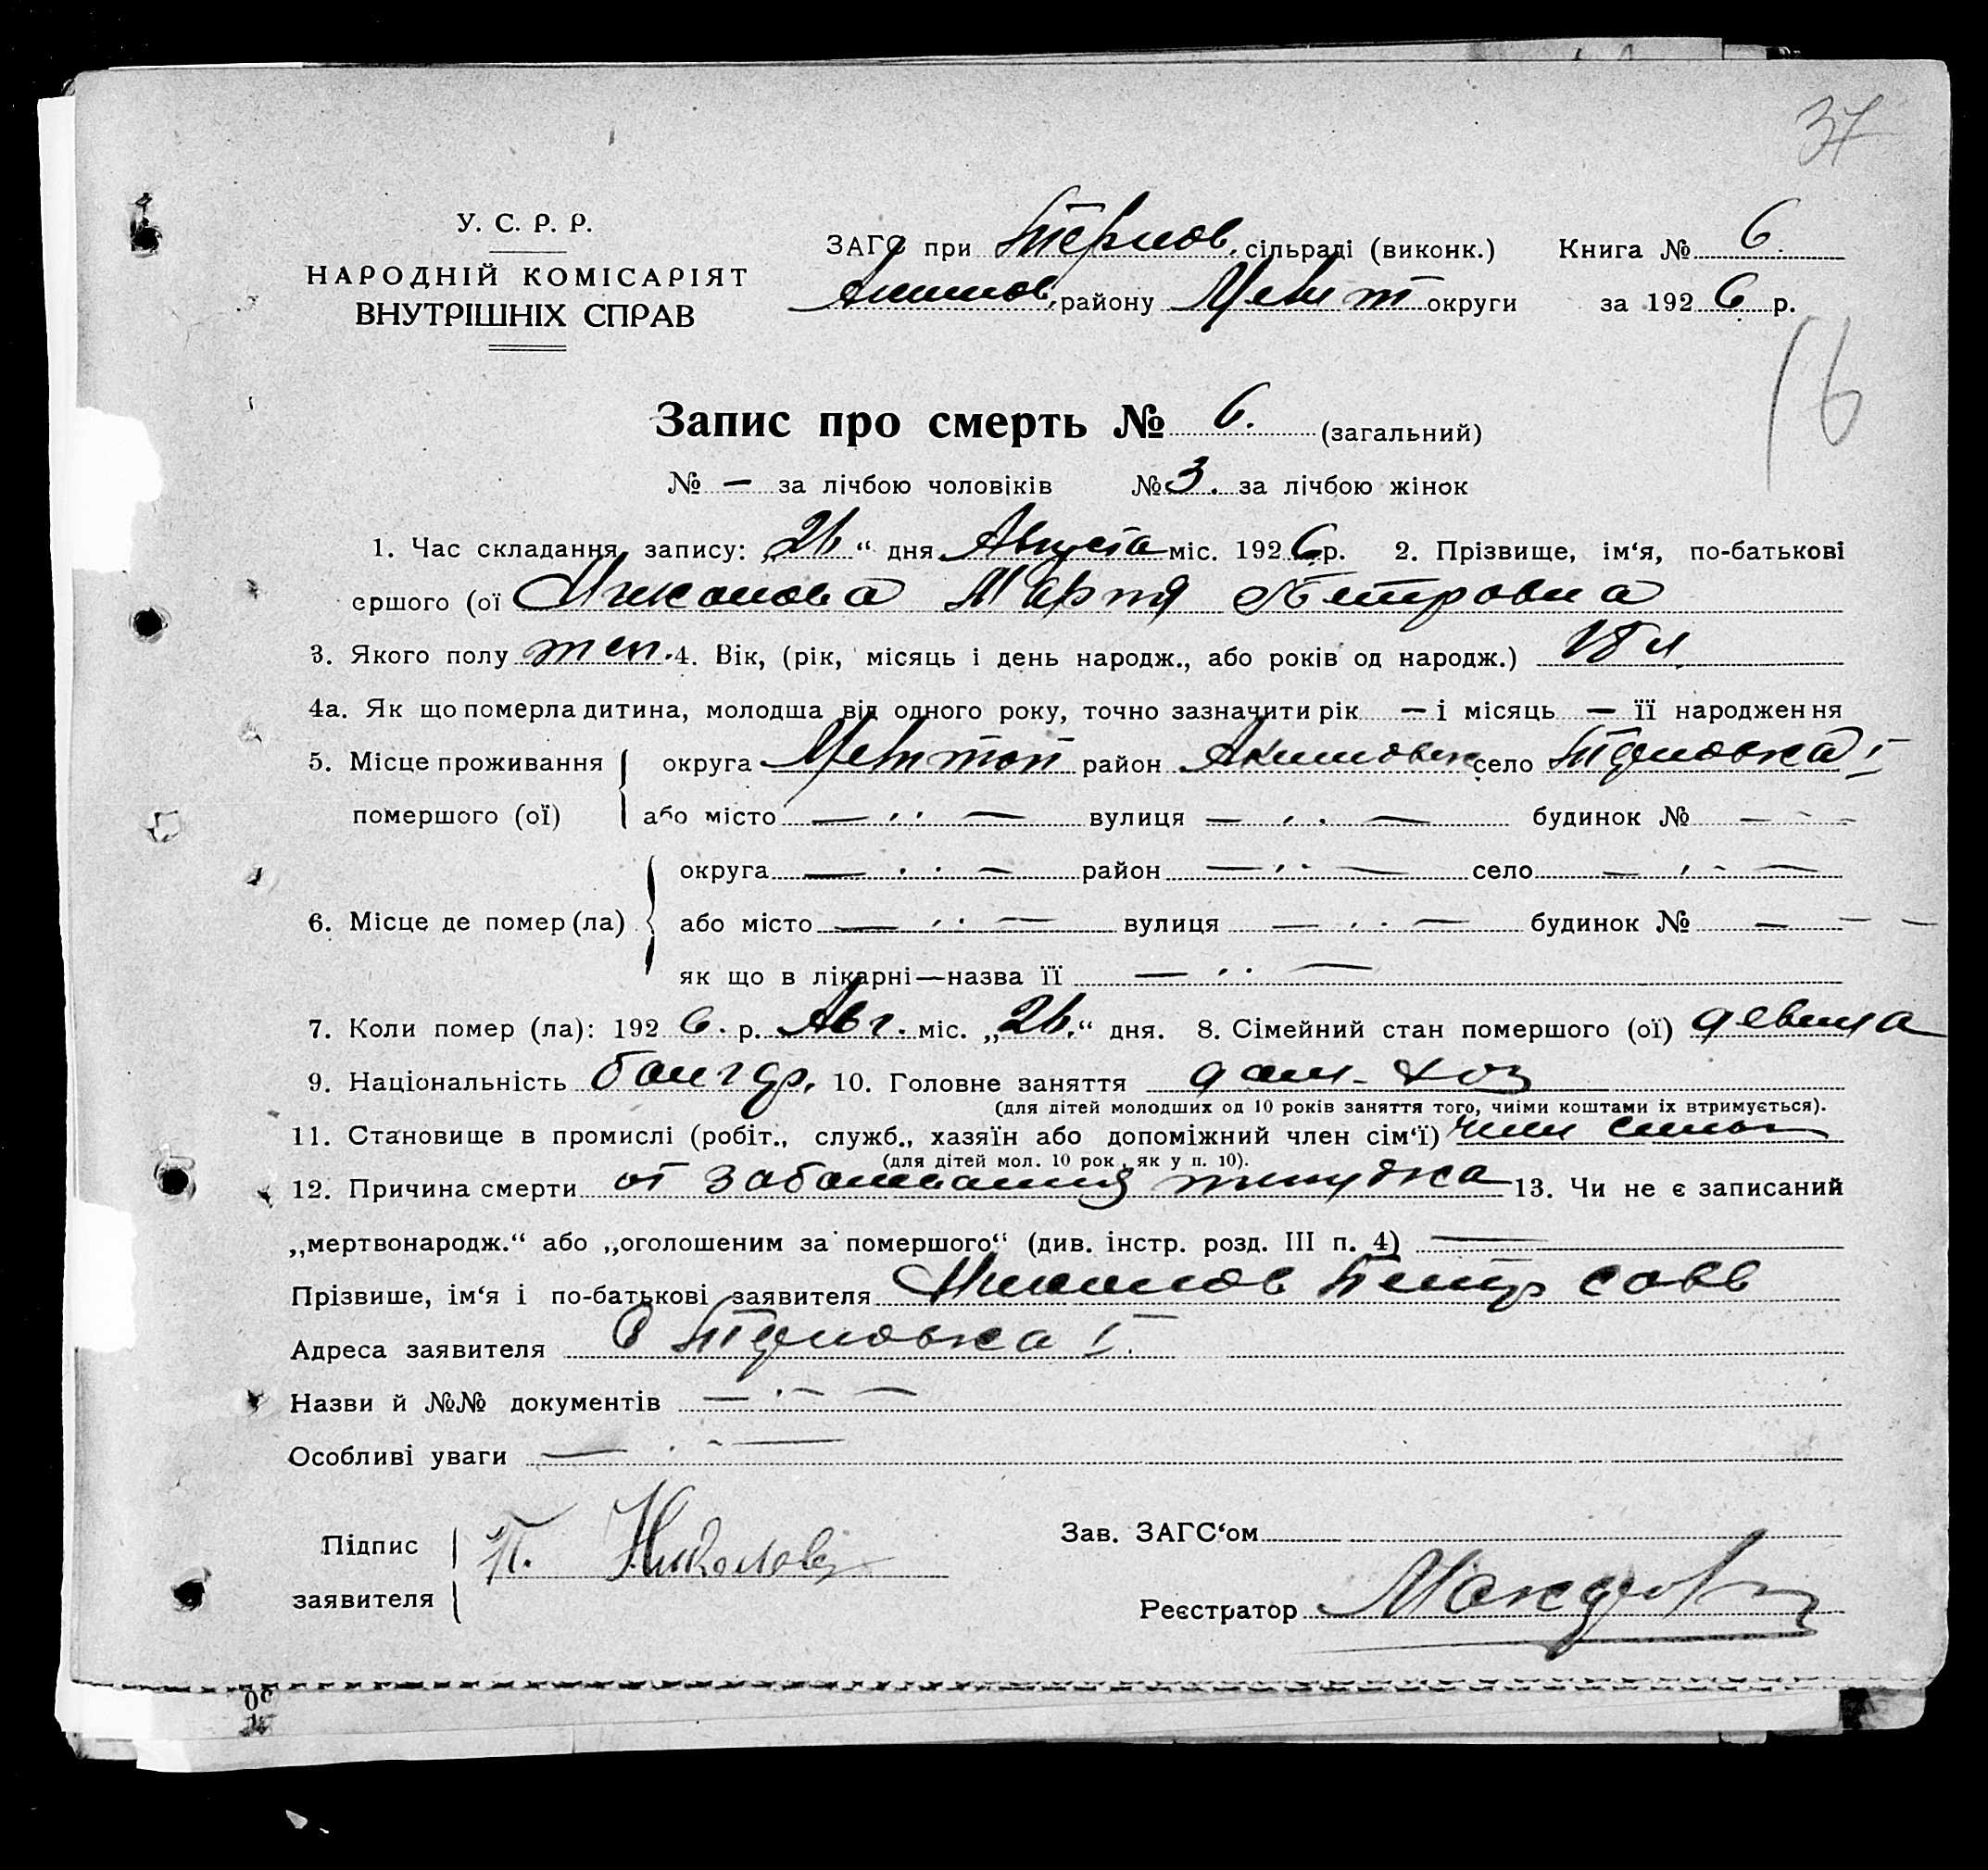 37
У. С. Р. Р.
НАРОДНІЙ КОМІСАРІЯТ
ВНУТРІШНІХ СПРАВ
ЗАГС при Тернов. сільраді (виконк.) Книга № 6.
Акимов. району Мелит округи за 1926 р.
16
Запис про смерть № 6. (загальний)
№ — за лічбою чоловіків № 3. за лічбою жінок
1. Час складання запису: „26“ дня Августа міс. 1926 р. 2. Прізвище, ім‘я, по-батькові
ершого (ої Николова Мария Петровна
3. Якого полу жен. 4. Вік, (рік, місяць і день народж., або років од народж.)
4а. Як що померла дитина, молодша від одного року, точно зазначити рік — і місяць — її народження
5. Місце проживання округа Мелитоп район Акимовск село Терновка I
помершого (ої) або місто — вулиця — будинок № —
округа — район — село —
6. Місце де помер (ла) або місто — вулиця — будинок № —
як що в лікарні—назва її —
7. Коли помер (ла): 1926. р. Авг. міс. „26.“ дня. 8. Сімейний стан помершого (ої) девица
9. Національність болгар. 10. Головне заняття дом. хоз
(для дітей молодших од 10 років заняття того, чиїми коштами їх втримується).
11. Становище в промислі (робіт., служб., хазяїн або допоміжний член сім‘ї) член семьи
(для дітей мол. 10 рок., як у п. 10).
12. Причина смерти от заболевания желудка 13. Чи не є записаний
„мертвонародж.“ або „оголошеним за помершого“ (див. інстр. розд. III п. 4) —
Прізвише, ім‘я і по-батькові заявителя Николов Петр Савв
Адреса заявителя С Терновка I.
Назви й №№ документів —
Особливі уваги —
Підпис П. Николов Зав. ЗАГС‘ом
заявителя Реєстратор